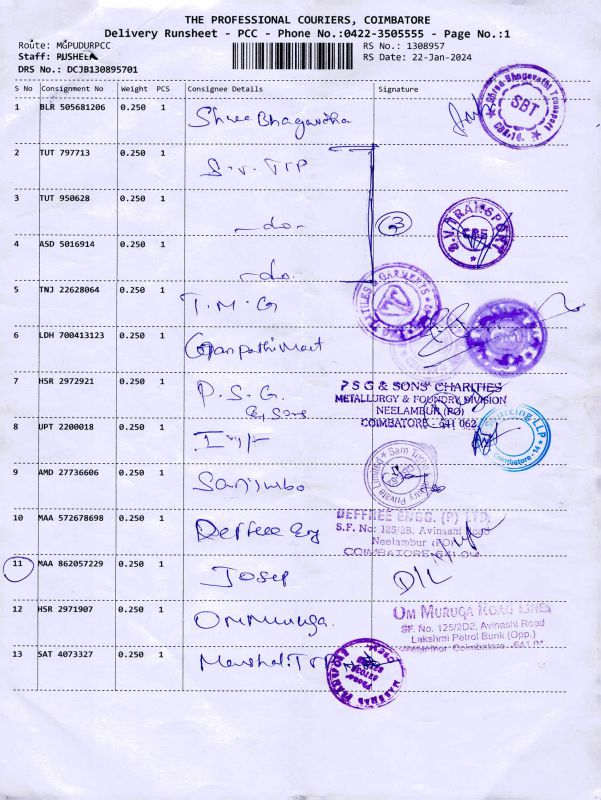 THE PROFESSIONAL COURIERS, COIMBATORE
Delivery Runsheet - PCC - Phone No.:0422-3505555 - Page No.:1
Route: MGPUDURPCC RS No.: 1308957
Staff: MUSHEER RS Date: 22-Jan-2024
DRS No.: DCJB130895701
S No Consignment No Weight PCS Consignee Details Signature
1 BLR 505681206 0.250 1 Shree Bhagavatha
Shree Bhagavathi Transport SBT CBE-14.
2 TUT 797713 0.250 1 S.V. TTP
3 TUT 950628 0.250 1 -do- 3
S.V. TRANSPORT CBE
4 ASD 5016914 0.250 1 -do.
5 TNJ 22628064 0.250 1 T.M.G
GARMENTS
6 LDH 700413123 0.250 1 Ganpathi Mart
7 HSR 2972921 0.250 1 P.S.G. & Sons
P S G & SONS' CHARITIES
METALLURGY & FOUNDRY DIVISION
NEELAMBUR (PO)
COIMBATORE - 641 062
8 UPT 2200018 0.250 1
Sourcing LLP Coimbatore-14
9 AMD 27736606 0.250 1
Sam Private Limited
10 MAA 572678698 0.250 1 Deffree Eng
DEFFREE ENGG. (P) LTD
S.F. No: 125/2B, Avinashi Road
Neelambur (PO)
COIMBATORE-641 062
11 MAA 862057229 0.250 1 Josep D/L
12 HSR 2971907 0.250 1 OmMuruga.
OM MURUGA ROAD LINES
SF. No. 125/2D2, Avinashi Road
Lakshmi Petrol Bank (Opp.)
Coimbatore - 641 01
13 SAT 4073327 0.250 1 Marshal. TTP